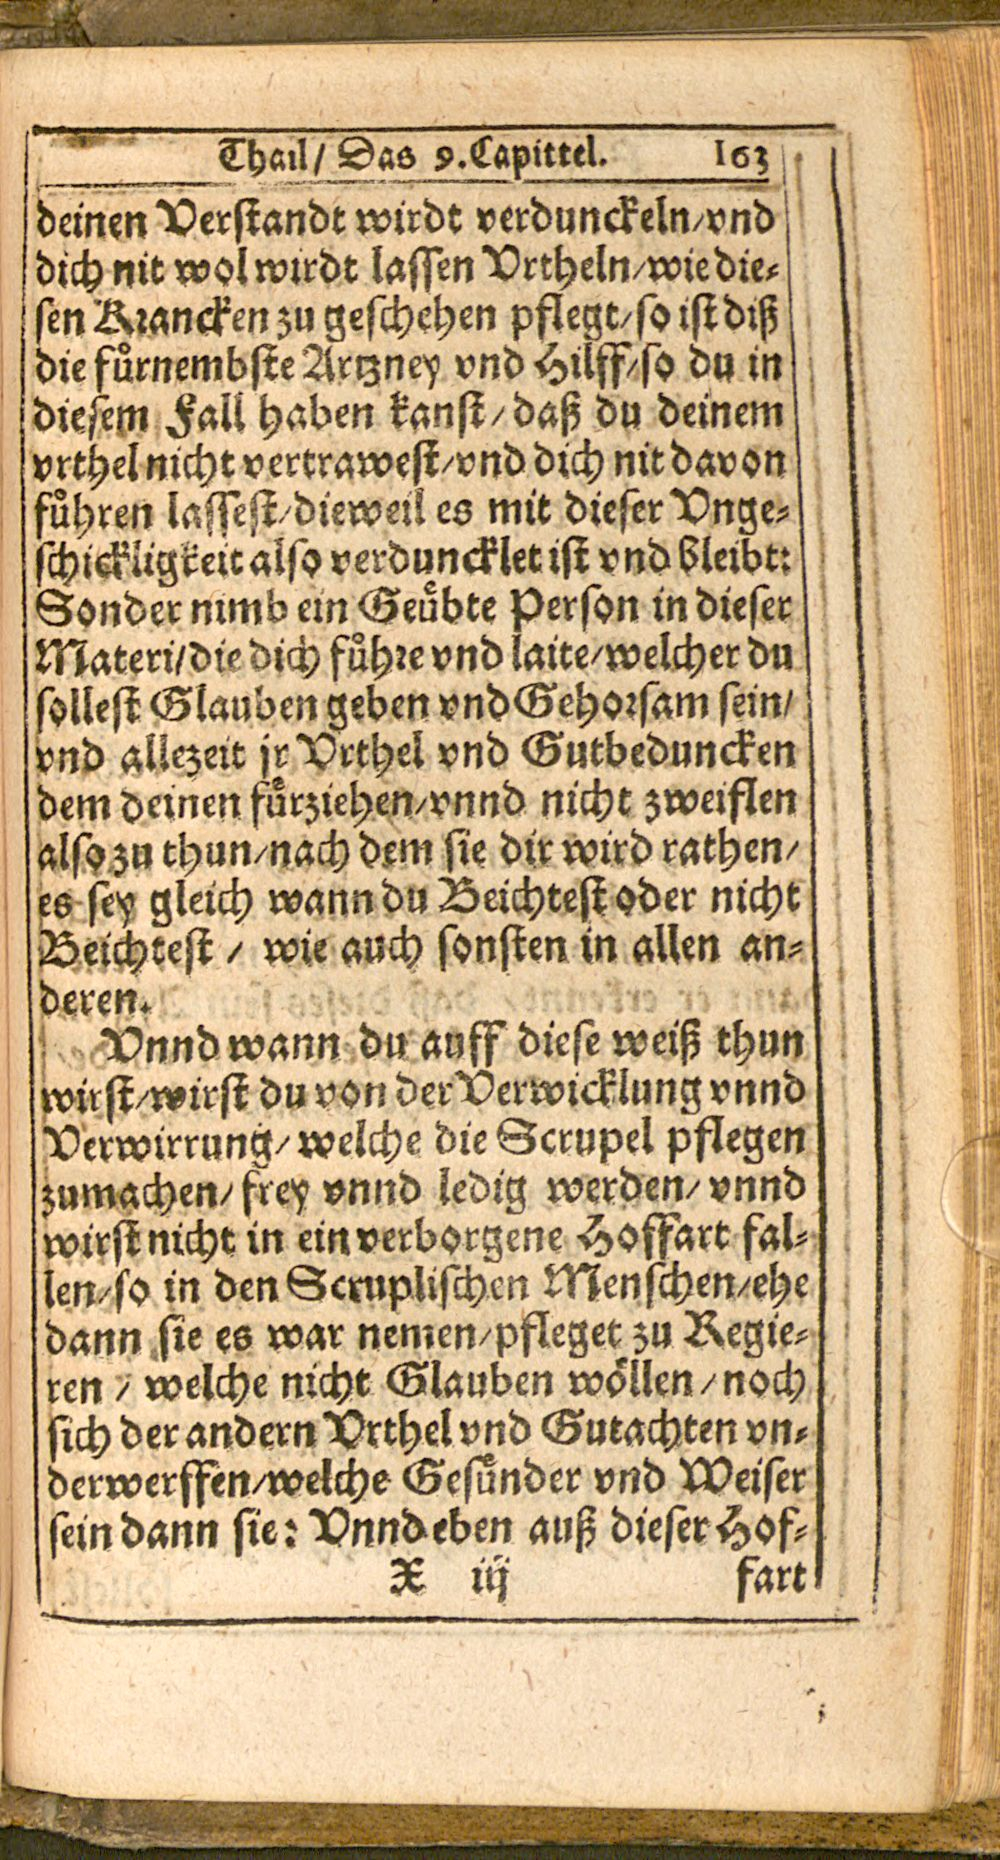 Thail/ Das 9. Capittel. 163
deinen Verstandt wirdt verdunckeln/vnd
dich nit wol wirdt lassen Vrtheln/wie die⸗
sen Krancken zu geschehen pflegt/so ist diß
die fuͤrnembste Artzney vnd Hilff/so du in
diesem Fall haben kanst/daß du deinem
vrthel nicht vertrawest/vnd dich nit davon
fuͤhren lassest/dieweil es mit dieser Vnge⸗
schickligkeit also verduncklet ist vnd bleibt:
Sonder nimb ein Geuͤbte Person in dieser
Materi/die dich fuͤhre vnd laite/welcher du
sollest Glauben geben vnd Gehorsam sein/
vnd allezeit jr Vrthel vnd Gutbeduncken
dem deinen fuͤrziehen/vnnd nicht zweiflen
also zu thun/nach dem sie dir wird rathen/
es sey gleich wann du Beichtest oder nicht
Beichtest / wie auch sonsten in allen an⸗
deren.
Vnnd wann du auff diese weiß thun
wirst/wirst du von der Verwicklung vnnd
Verwirrung/welche die Scrupel pflegen
zumachen/frey vnnd ledig werden/vnnd
wirst nicht in ein verborgene Hoffart fal⸗
len/so in den Scruplischen Menschen/ehe
dann sie es war nemen/pfleget zu Regie⸗
ren / welche nicht Glauben woͤllen/noch
sich der andern Vrthel vnd Gutachten vn⸗
derwerffen/welche Gesuͤnder vnd Weiser
sein dann sie: Vnnd eben auß dieser Hof⸗
X iij fart